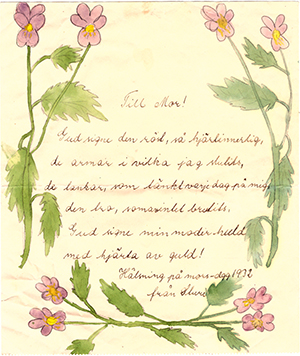 Till Mor!
Gud signe den röst, så hjärtinnerlig,
de armar i vilka jag slutits,
de tankar, som tänkt varje dag på mig
den bro, som
Gud signe min moder huld
med hjärta av guld!
Hälsning på mors-dag 1932
från Sture